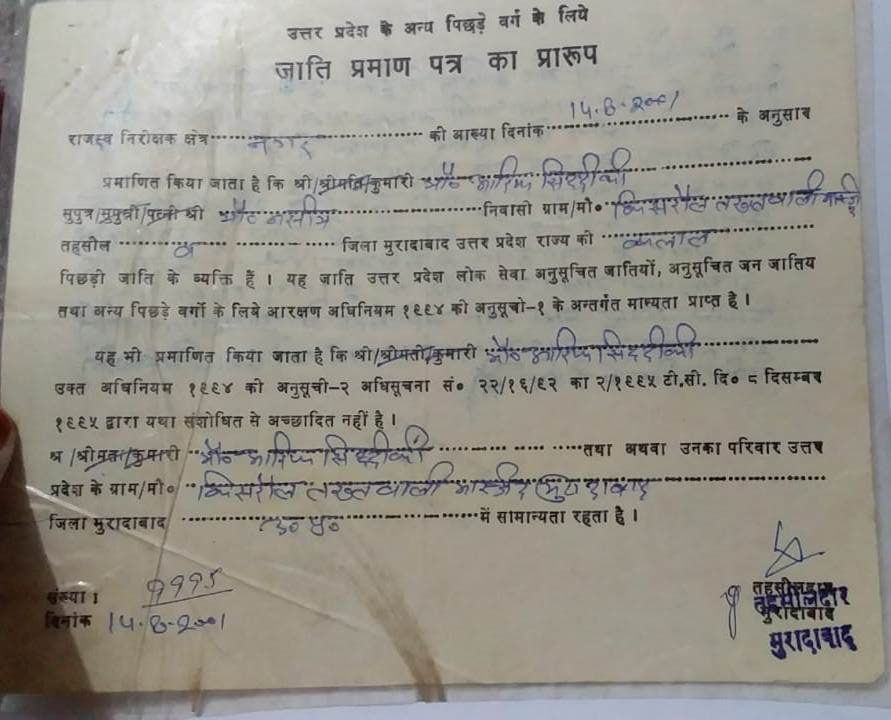 उत्तर प्रदेश के अन्य पिछड़े वर्ग के लिये
जाति प्रमाण पत्र का प्रारूप
राजस्व निरीक्षक क्षेत्र नगर की आख्या दिनांक 14.8.2001 के अनुसार
प्रमाणित किया जाता है कि श्री/श्रीमति/कुमारी मौ० आरिफ सिददीकी
सुपुत्र/सुपुत्री/पत्नी श्री मौ० निवासी ग्राम/मौ० किसरौल तख्त वाली मस्जिद
तहसील जिला मुरादाबाद उत्तर प्रदेश राज्य की
पिछड़ी जाति के व्यक्ति हैं । यह जाति उत्तर प्रदेश लोक सेवा अनुसूचित जातियों, अनुसूचित जन जातिय
तथा अन्य पिछड़े वर्गो के लिये आरक्षण अधिनियम १९९४ की अनुसूची-१ के अन्तर्गत मान्यता प्राप्त है ।
यह भी प्रमाणित किया जाता है कि श्री/श्रीमती/कुमारी मौ० आरिफ सिददीकी
उक्त अधिनियम १९९४ की अनुसूची-२ अधिसूचना सं० २२/१६/९२ का २/१९९५ टी.सी. दि० ८ दिसम्बर
१९९५ द्वारा यथा संशोधित से अच्छादित नहीं है ।
श्र /श्रीमती/कुमारी मौ० आरिफ सिददीकी तथा अथवा उनका परिवार उत्तर
प्रदेश के ग्राम/मौ० किसरौल तख्त वाली मस्जिद मुरादाबाद
जिला मुरादाबाद उ० प्र० में सामान्यता रहता है ।
संख्या : १११५
दिनांक 14.8.2001
तहसीलदार
तहसीलदार
मुरादाबाद
मुरादाबाद